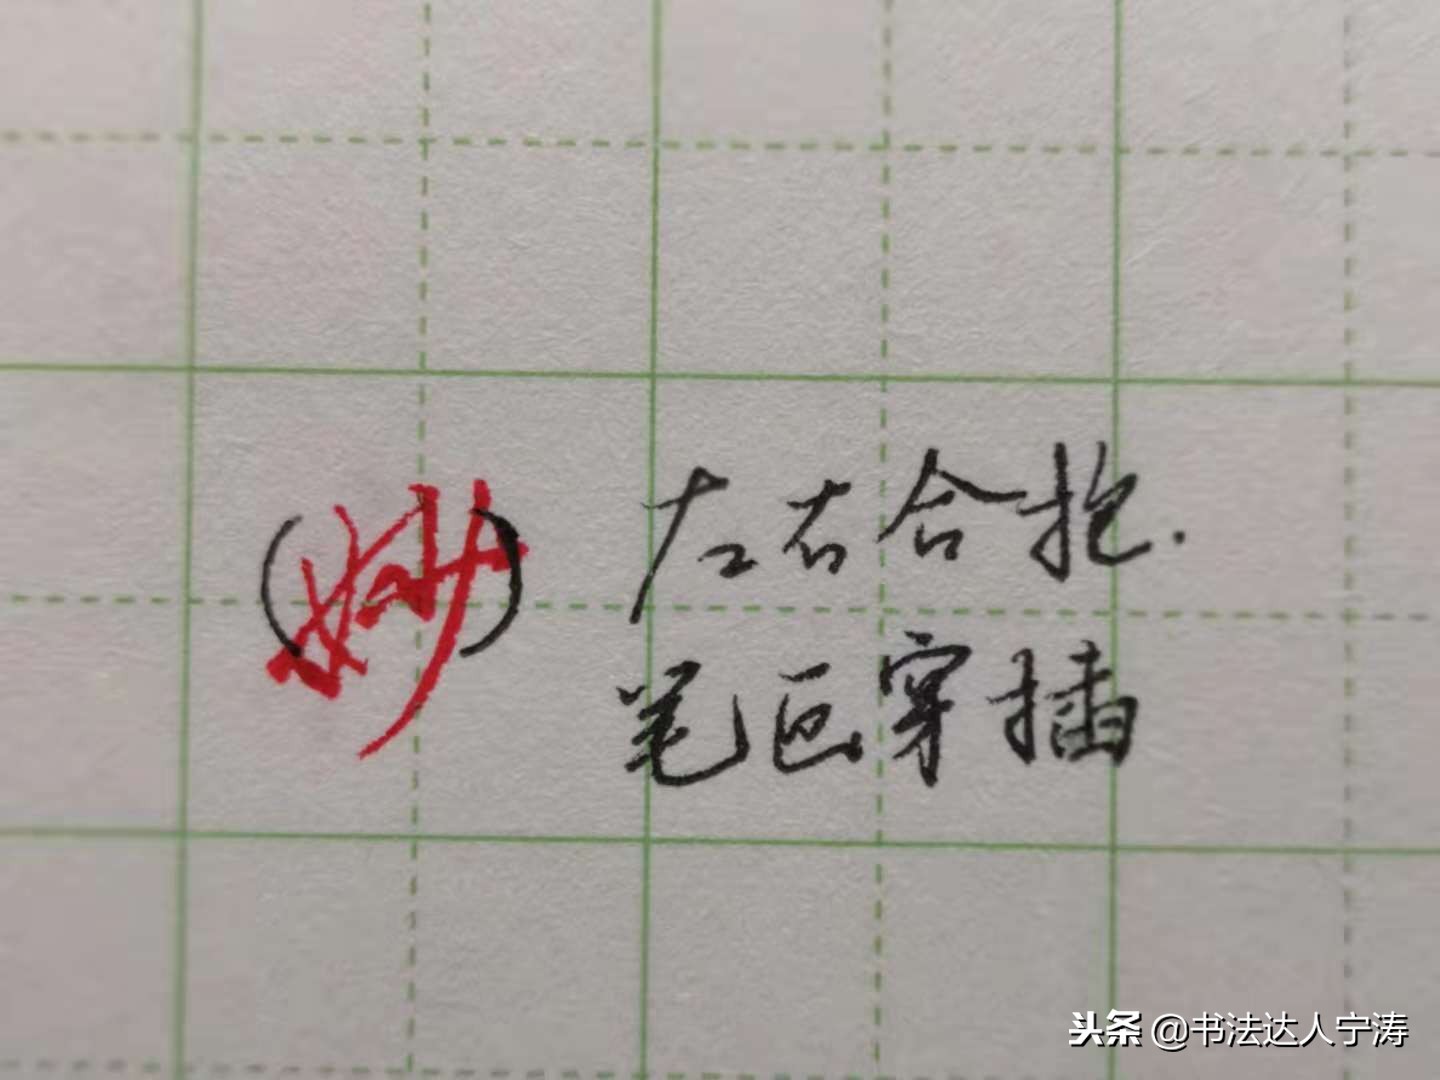 妙
左右合抱.
笔画穿插
头条 @书法达人宁涛